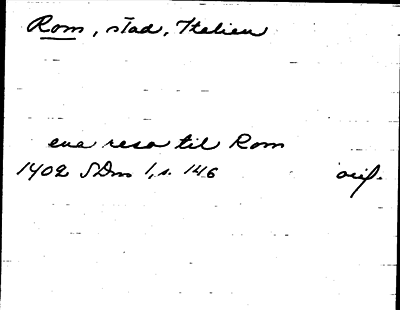 Rom, stad, Italien
ena resa til Rom
1402 SDm 1, s. 146 orig.